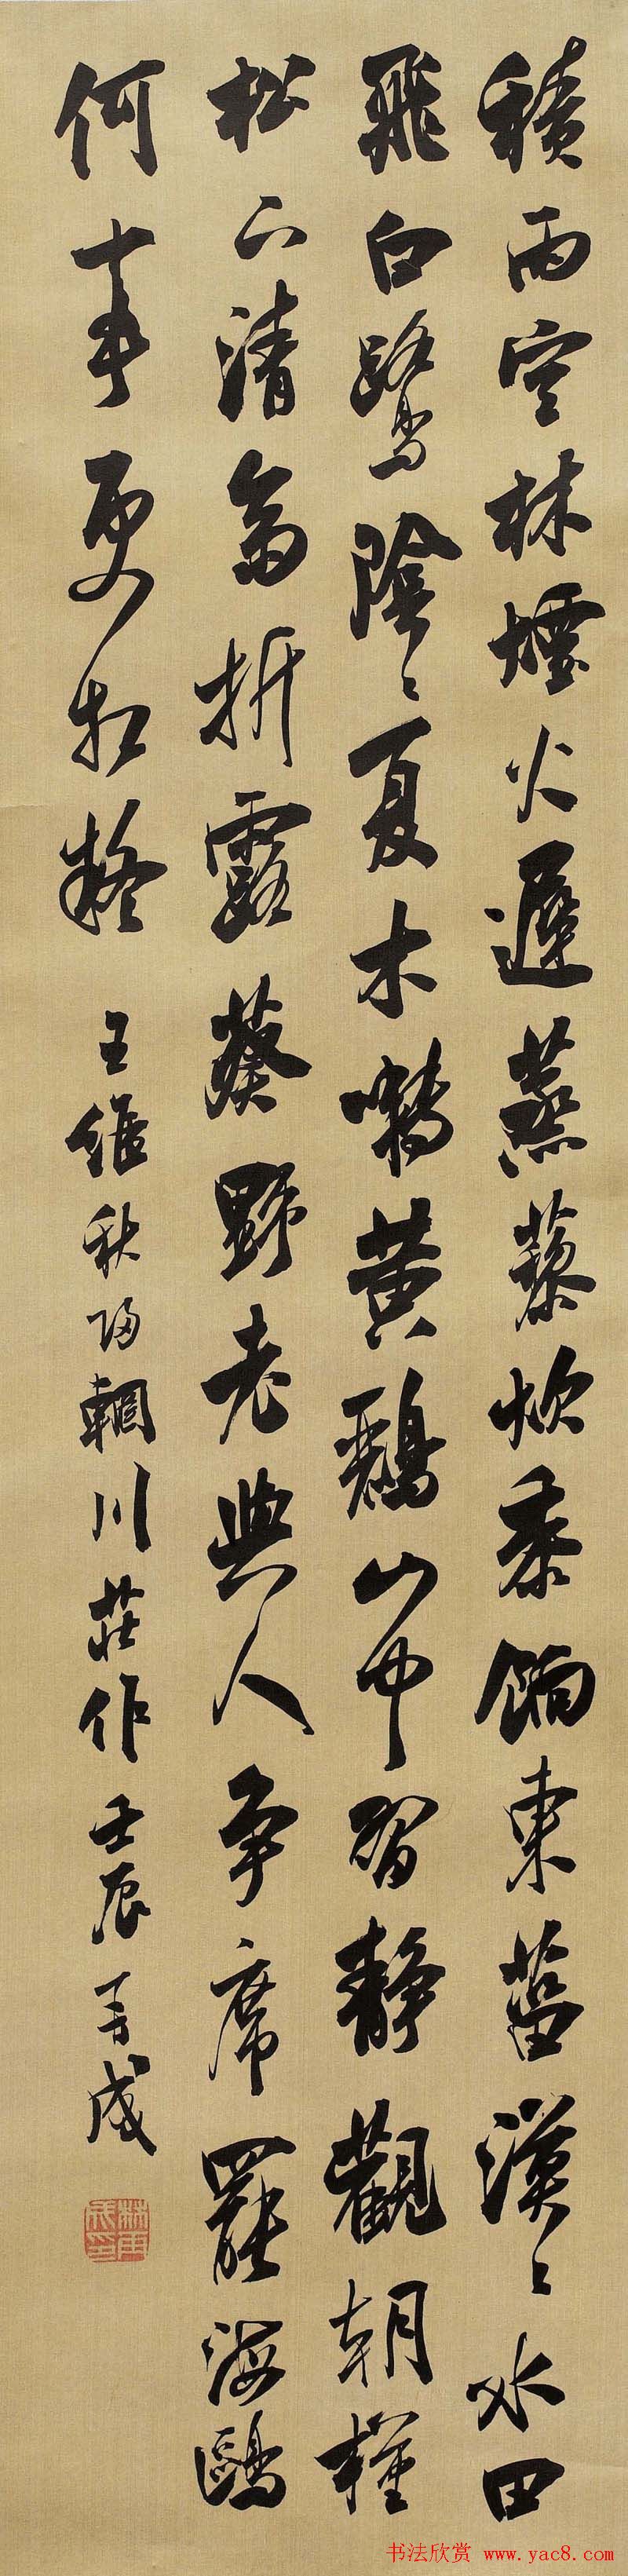 積雨空林煙火遲蒸藜炊黍餉東菑漠〻水田
飛白鷺陰〻夏木囀黃鸝山中習靜觀朝槿
松下清齋折露葵野老與人爭席罷海鷗
何事更相疑 王維秋歸輞川莊作 壬辰 成
书法欣赏 www.yac8.com